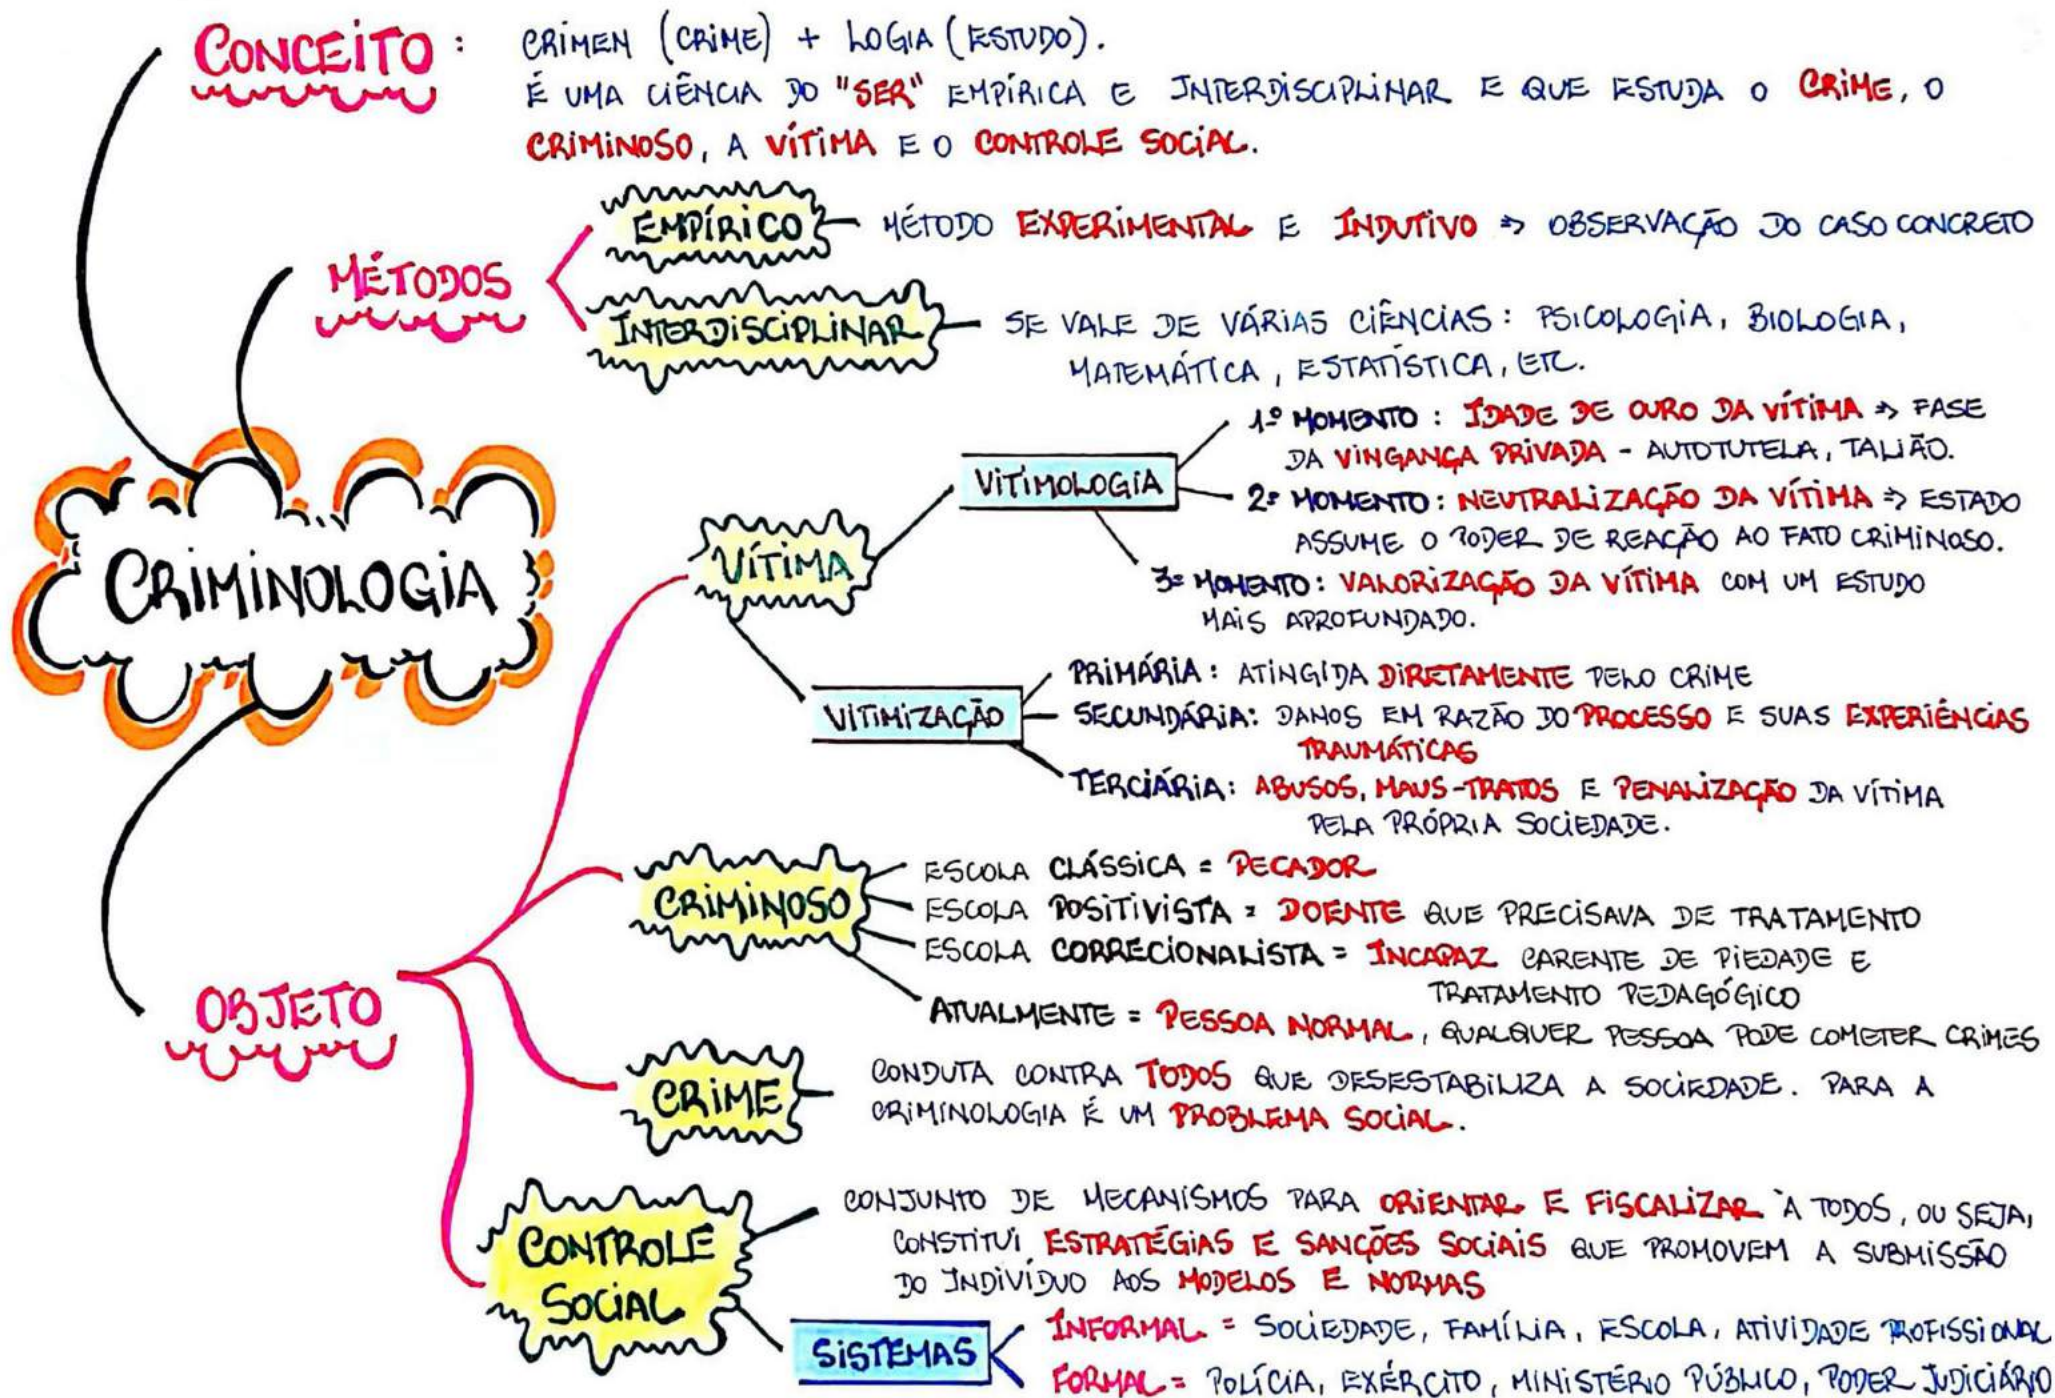 CONCEITO: CRIMEN (CRIME) + LOGIA (ESTUDO).
É UMA CIÊNCIA DO "SER" EMPÍRICA E INTERDISCIPLINAR E QUE ESTUDA O CRIME, O
CRIMINOSO, A VÍTIMA E O CONTROLE SOCIAL.
MÉTODOS
EMPÍRICO
MÉTODO EXPERIMENTAL E INDUTIVO => OBSERVAÇÃO DO CASO CONCRETO
INTERDISCIPLINAR
SE VALE DE VÁRIAS CIÊNCIAS: PSICOLOGIA, BIOLOGIA,
MATEMÁTICA, ESTATÍSTICA, ETC.
CRIMINOLOGIA
OBJETO
VÍTIMA
VITIMOLOGIA
1º MOMENTO: IDADE DE OURO DA VÍTIMA => FASE
DA VINGANÇA PRIVADA - AUTOTUTELA, TALIÃO.
2º MOMENTO: NEUTRALIZAÇÃO DA VÍTIMA => ESTADO
ASSUME O PODER DE REAÇÃO AO FATO CRIMINOSO.
3º MOMENTO: VALORIZAÇÃO DA VÍTIMA COM UM ESTUDO
MAIS APROFUNDADO.
VITIMIZAÇÃO
PRIMÁRIA: ATINGIDA DIRETAMENTE PELO CRIME
SECUNDÁRIA: DANOS EM RAZÃO DO PROCESSO E SUAS EXPERIÊNCIAS
TRAUMÁTICAS
TERCIÁRIA: ABUSOS, MAUS-TRATOS E PENALIZAÇÃO DA VÍTIMA
PELA PRÓPRIA SOCIEDADE.
CRIMINOSO
ESCOLA CLÁSSICA = PECADOR
ESCOLA POSITIVISTA = DOENTE QUE PRECISAVA DE TRATAMENTO
ESCOLA CORRECIONALISTA = INCAPAZ CARENTE DE PIEDADE E
TRATAMENTO PEDAGÓGICO
ATUALMENTE = PESSOA NORMAL, QUALQUER PESSOA PODE COMETER CRIMES
CRIME
CONDUTA CONTRA TODOS QUE DESESTABILIZA A SOCIEDADE. PARA A
CRIMINOLOGIA É UM PROBLEMA SOCIAL.
CONTROLE
SOCIAL
CONJUNTO DE MECANISMOS PARA ORIENTAR E FISCALIZAR À TODOS, OU SEJA,
CONSTITUI ESTRATÉGIAS E SANÇÕES SOCIAIS QUE PROMOVEM A SUBMISSÃO
DO INDIVÍDUO AOS MODELOS E NORMAS
SISTEMAS
INFORMAL = SOCIEDADE, FAMÍLIA, ESCOLA, ATIVIDADE PROFISSIONAL
FORMAL = POLÍCIA, EXÉRCITO, MINISTÉRIO PÚBLICO, PODER JUDICIÁRIO